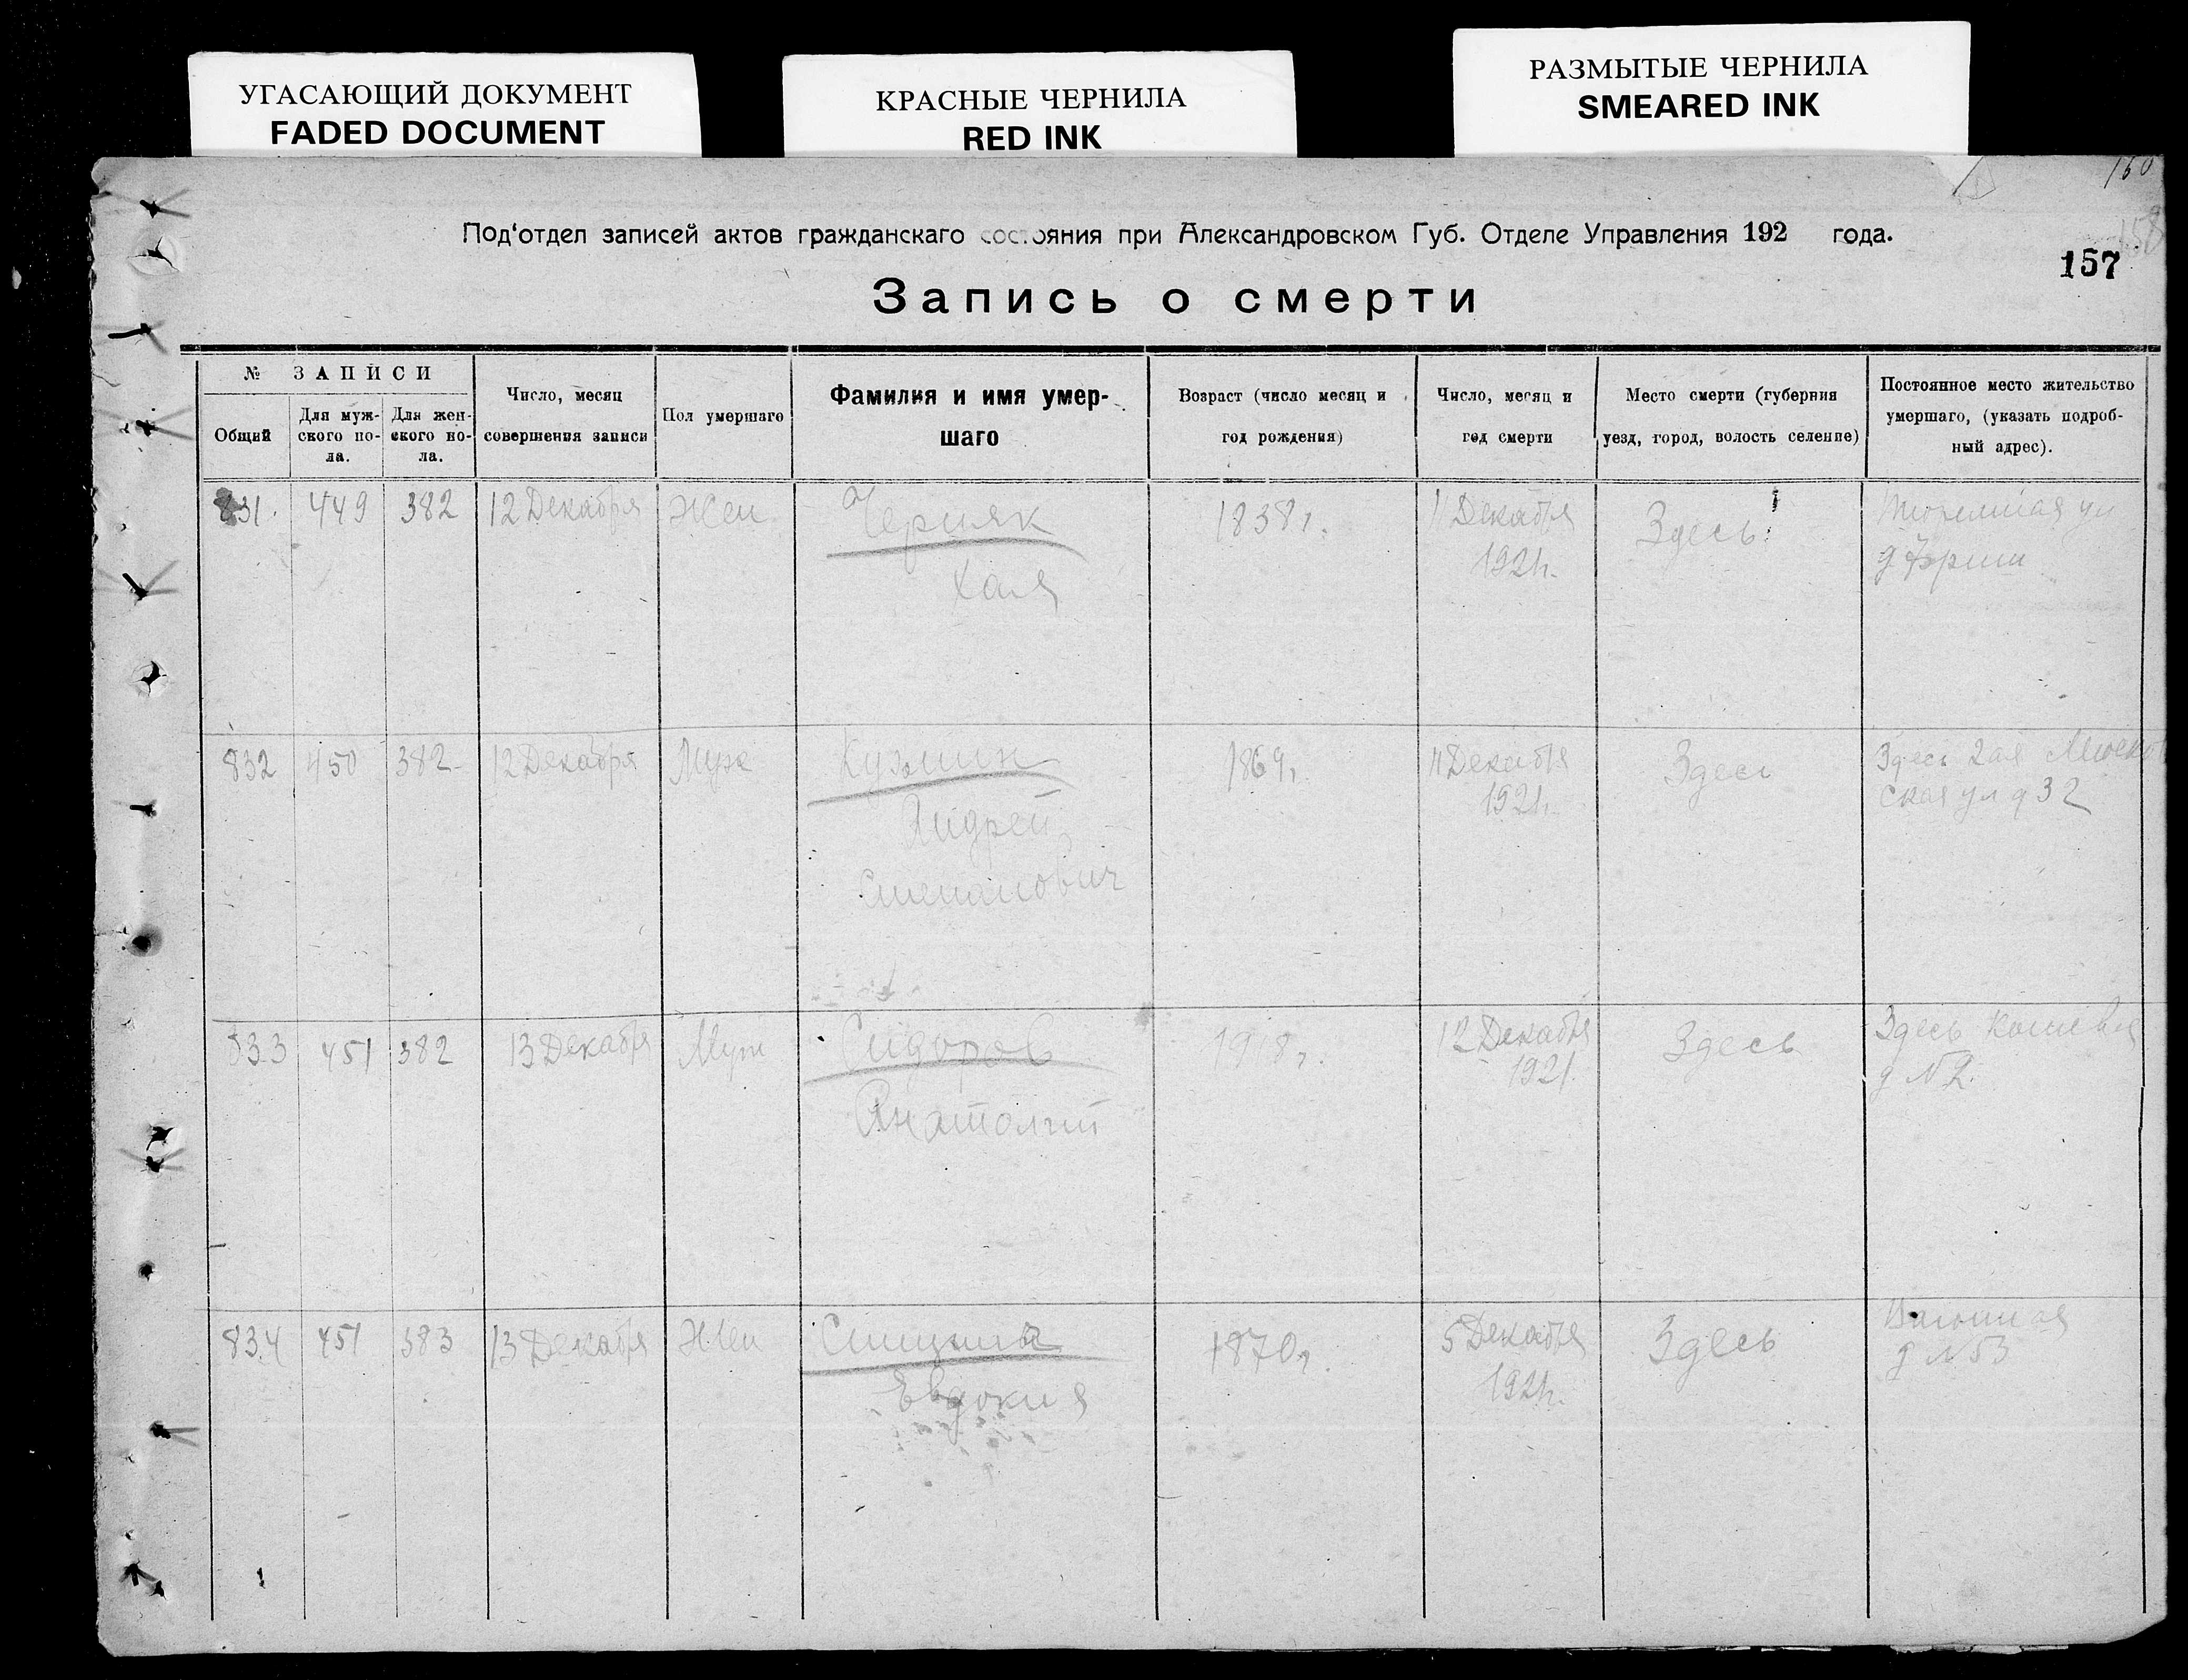 УГАСАЮЩИЙ ДОКУМЕНТ
FADED DOCUMENT
КРАСНЫЕ ЧЕРНИЛА
RED INK
РАЗМЫТЫЕ ЧЕРНИЛА
SMEARED INK
150
158
Под‘отдел записей актов гражданскаго состояния при Александровском Губ. Отделе Управления 192 года.
157
Запись о смерти
№ ЗАПИСИ
Общий
Для муж-
ского по-
ла.
Для жен-
ского по-
ла.
Число, месяц
совершения записи
Пол умершаго
Фамилия и имя умер-
шаго
Возраст (число месяц и
год рождения)
Число, месяц и
год смерти
Место смерти (губерния
уезд, город, волость селение)
Постоянное место жительство
умершаго, (указать подроб-
ный адрес).
831. 449 382 12 Декабря Жен Черняк 1838г. 11 Декабря Здесь
Хая 1921г.
832 450 382 12 Декабря Муж Кузмин 1869г. 11 Декабря Здесь Здесь 2ая
Андрей 1921г. ская ул д 32
Степанович
833 451 382 13 Декабря Муж Сидоров 1918г. 12 Декабря Здесь Здесь
Анатолий 1921. д N2.
834 451 383 13 Декабря Жен 1870г. 5 Декабря Здесь
Евдокия 1921г. д N53